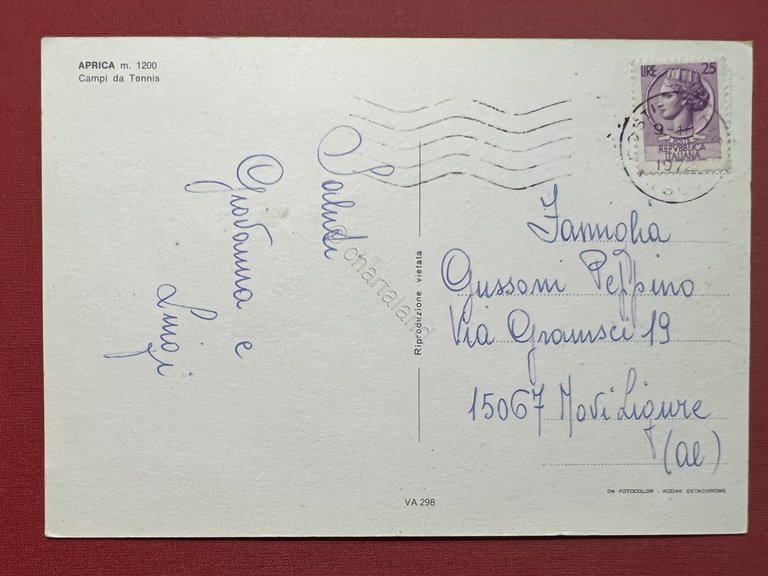 APRICA m. 1200
Campi da Tennis
Saluti
Giovanna e
Luigi
Riproduzione vietata
VA 298
LIRE 25
POSTE
REPVBBLICA
ITALIANA
Famiglia
Gussoni Peppino
Via Gramsci 19
15067 Novi Ligure
(al)
DA FOTOCOLOR - KODAK EKTACHROME
© chartaland